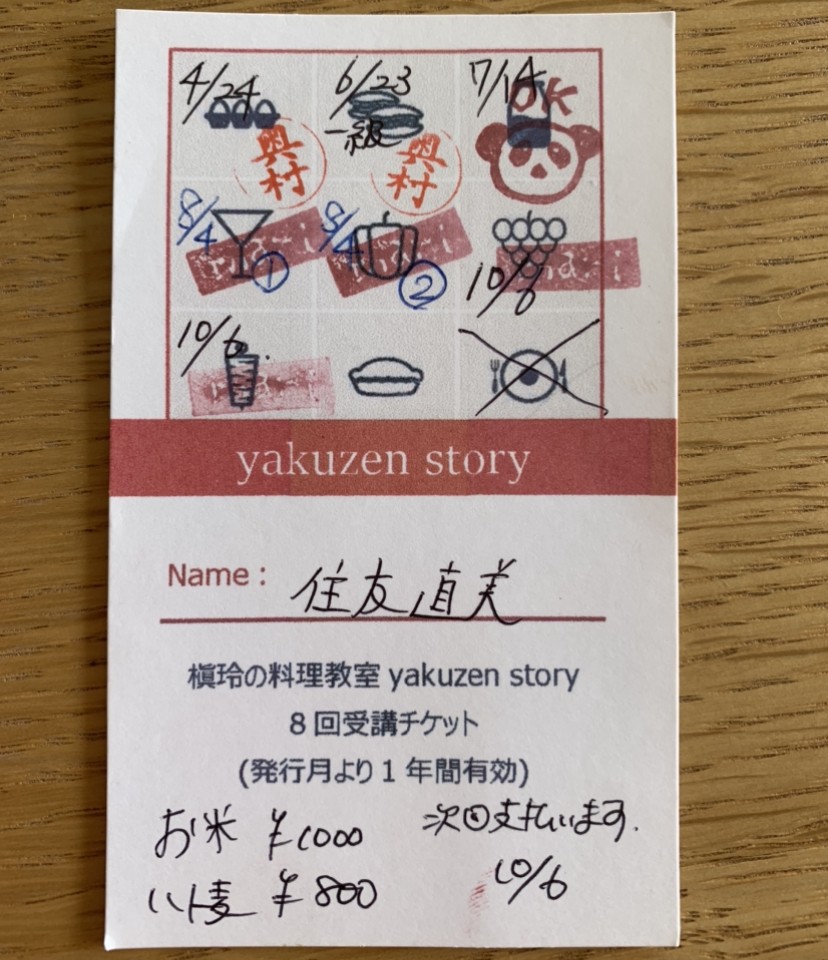 4/24 6/23 7/14
一級 OK
奥村 奥村
8/4 8/4
① ② 10/6
10/6.
yakuzen story
Name: 住友直美
槇玲の料理教室 yakuzen story
8回受講チケット
(発行月より1年間有効)
お米 ¥1000 次回支払います.
ハト麦 ¥800 10/6